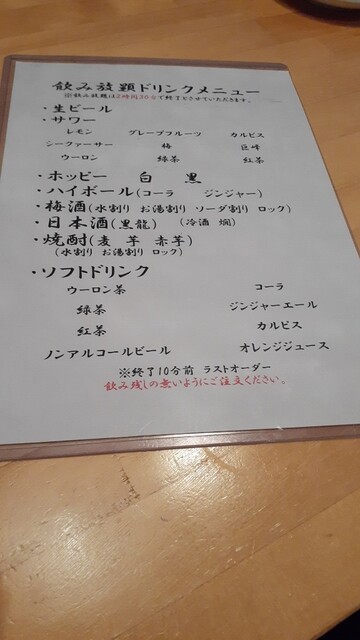 飲み放題ドリンクメニュー
※飲み放題は2時間30分で終了とさせていただきます。
・生ビール
・サワー
レモン グレープフルーツ カルピス
シークァーサー 梅 巨峰
ウーロン 緑茶 紅茶
・ホッピー 白 黒
・ハイボール(コーラ ジンジャー)
・梅酒(水割り お湯割り ソーダ割り ロック)
・日本酒(黒龍) (冷酒 燗)
・焼酎(麦 芋 赤芋)
(水割り お湯割り ロック)
・ソフトドリンク
ウーロン茶 コーラ
緑茶 ジンジャーエール
紅茶 カルピス
ノンアルコールビール オレンジジュース
※終了10分前 ラストオーダー
飲み残しの無いようにご注文ください。